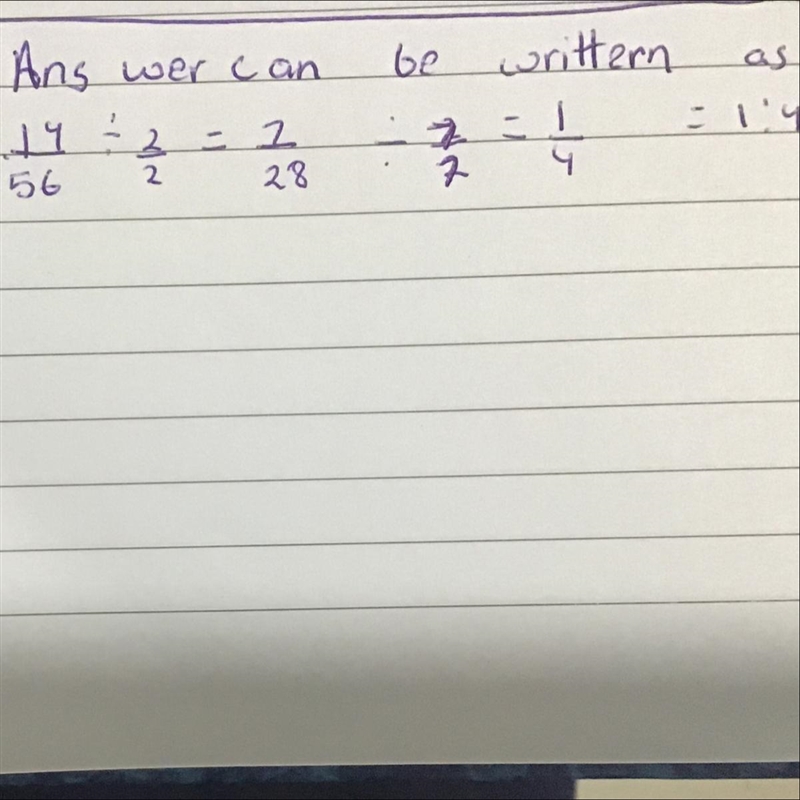 Answer can be writtern as
14/56 ÷ 2/2 = 7/28 ÷ 7/7 = 1/4 = 1:4